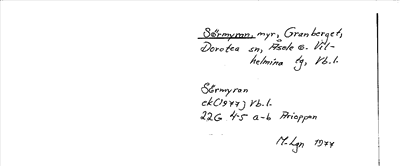 Sörmyran, myr, Granberget,
Dorotea sn, Åsele o. Vil-
helmina tg, Vb.l.
Sörmyran
ek(1977) Vb.l.
22G 4-5 a-b Arioppen
M.Lgn 1977